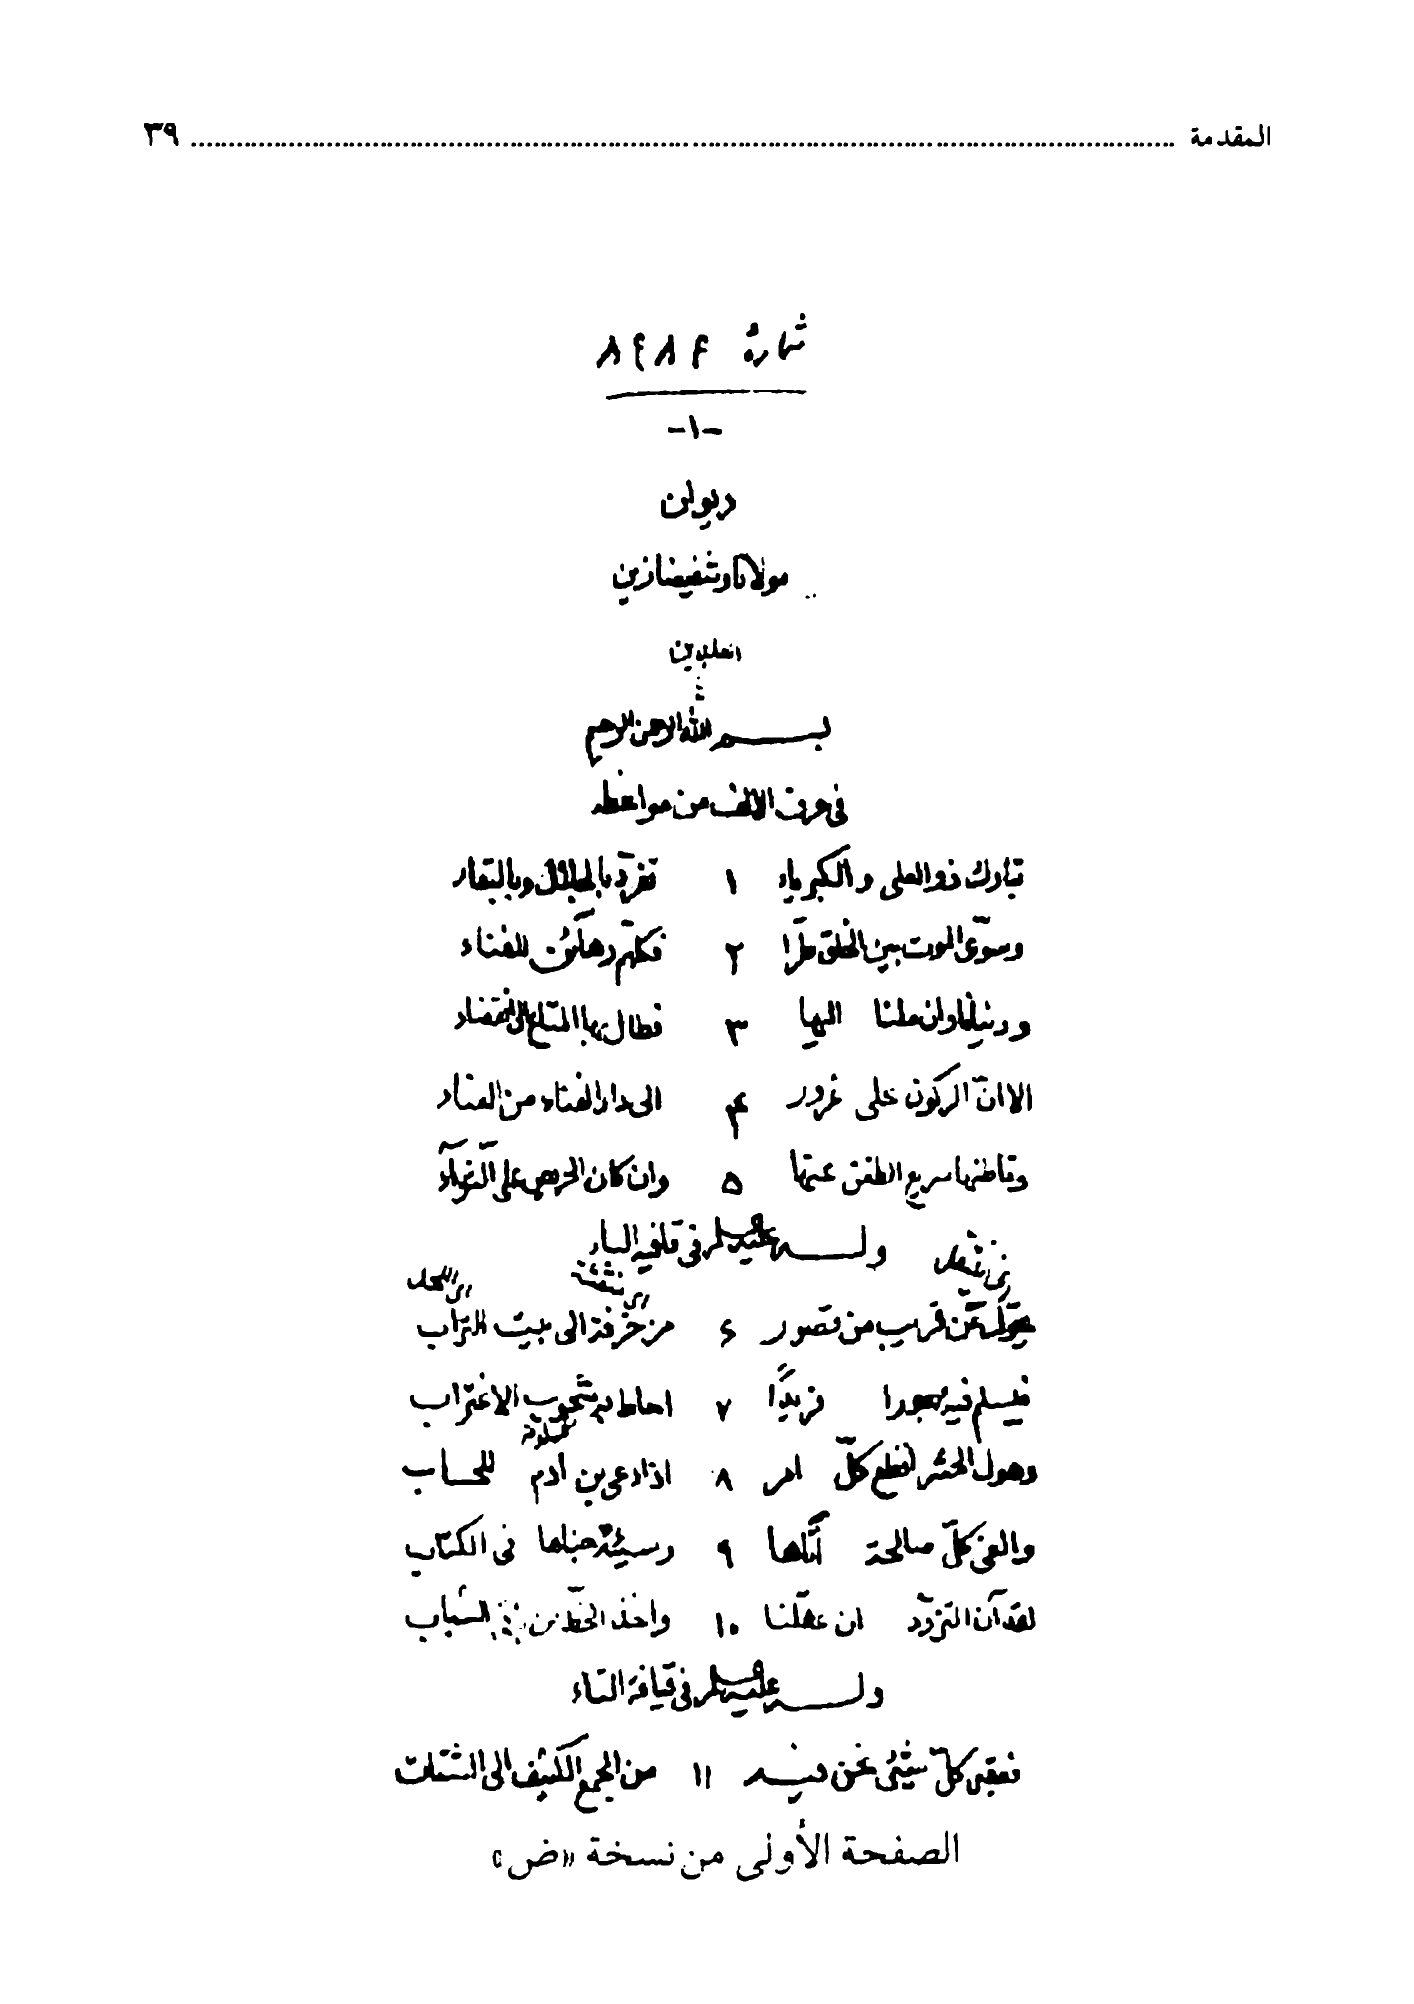 المقدمة ........ ٣٩
شماره ٨٤٨٤
-١-
ديوان
مولانا وشفيعنا زين
العابدين
بسم الله الرحمن الرحيم
فى حرف الالف من مواعظه
تبارك ذو العلى والكبرياء ١ تفرّد بالجلال وبالبقاء
وسوّى الموت بين الخلق طرّا ٢ فكلهم رهائن للفناء
ودنيانا وان ملنا اليها ٣ فطال بها المتاع الى انقضاء
الا انّ الركون على غرور ۴ الى دار الفناء من العناء
وقاطنها سريع الظعن عنها ۵ وان كان الحريص على الثواء
وله عليه السلم فى قافية الباء
يحوّل عن قريب من قصور ۶ مزخرفة الى بيت التراب
فيسلم فيه مهجورا فريدًا ٧ احاط به شحوب الاغتراب
وهول الحشر افظع كلّ امر ٨ اذا دعى بن آدم للحساب
والفى كلّ صالحة أتاها ٩ وسيئة جناها فى الكتاب
لقد آن التزوّد ان عقلنا ١٠ واخذ الحظّ من الشباب
وله عليه السلم فى قيافة التاء
فعقبى كلّ شيئى نحن فيه ١١ من الجمع الكثيف الى الشتات
الصفحة الأولى من نسخة «ض»